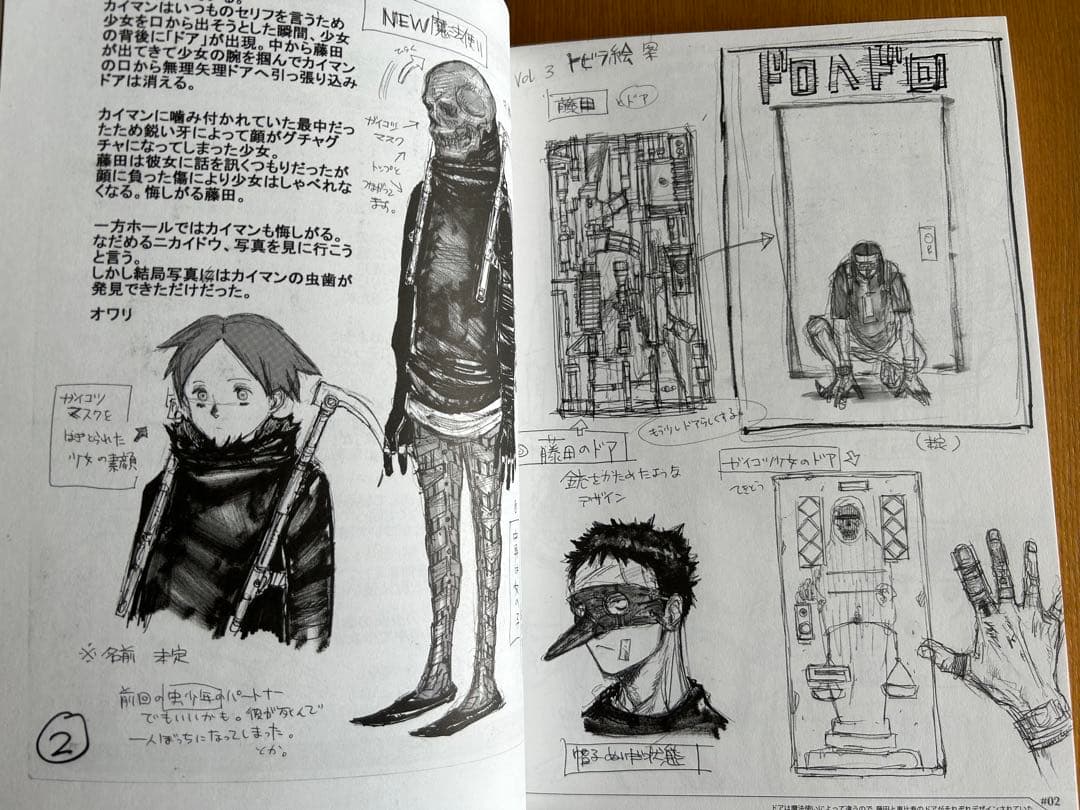 カイマンはいつものセリフを言うため
少女を口から出そうとした瞬間、少女
の背後に「ドア」が出現。中から藤田
が出てきて少女の腕を掴んでカイマン
の口から無理矢理ドアへ引っ張り込み
ドアは消える。
カイマンに噛み付かれていた最中だっ
たため鋭い牙によって顔がグチャグ
チャになってしまった少女。
藤田は彼女に話を訊くつもりだったが
顔に負った傷により少女はしゃべれな
くなる。悔しがる藤田。
一方ホールではカイマンも悔しがる。
なだめるニカイドウ、写真を見に行こう
と言う。
しかし結局写真にはカイマンの虫歯が
発見できただけだった。
オワリ
NEW魔法使い
ガイコツ
マスク
トップと
つながって
ます。
ガイコツ
マスクを
はぎとられた
少女の素顔
※名前 未定
前回の虫少年のパートナー
でもいいかも。彼が死んで
一人ぼっちになってしまった。
とか。
2
vol 3 トビラ絵 案
藤田 とドア
ドロヘドロ
もう少しドアらしくする。
(未定)
藤田のドア
銃をかためたような
デザイン
ガイコツ少女のドア
てきとう
帽子ぬいだ状態
#02
ドアは魔法使いによって違うので、藤田と恵比寿のドアがそれぞれデザインされていた